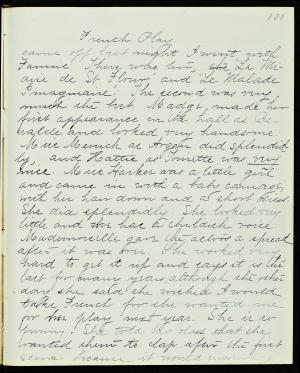 121
French Play
came off last night I went with
Fannie. There were two, "La Mé-
aire de St Flour," and "Le Malade
Imaginaire". The second was very
much the best. Madge, made her
first appearance in the hall as Be-
ralde and looked very handsome.
Miss Münch as Argan did splendid-
ly, and Hattie as Toinette was very
nice. Miss Harker was a little girl
and came in with a baby carriage,
with her hair down and a short dress.
She did splendidly. She looked very
little and has a childish voice
Mademoiselle gave the actors a spread
after it was over. She worked very
hard to get it up and says it is the
last for many years although the other
day she said she wished I would
take French for she wanted me
for her play next year. She is so
funny! She told her class that she
wanted them to clap after the first
scene because it would